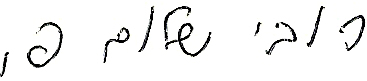 רובי שלום פ.